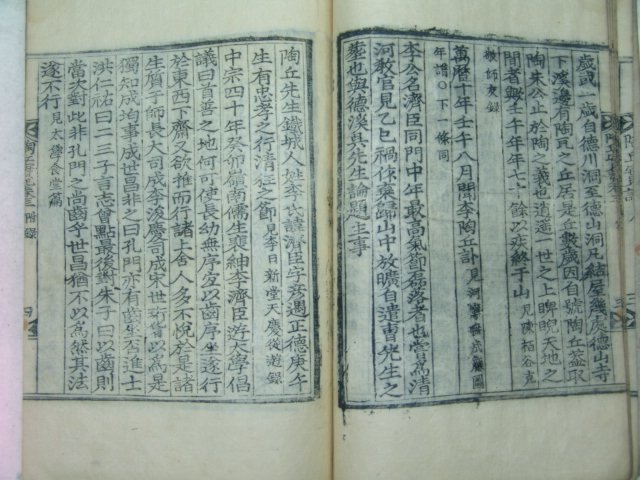 歲或一歲自德川洞至德山洞凡結屋幾處德山寺
下溪邊有陶瓦之丘居是丘數歲因自號陶丘盖取
陶朱公止於陶之義也逍遙一世之上睥睨天地之
間者與 年年七十餘以疾終于山見陳栢谷克
敬師友錄
萬曆十年壬午八月聞李陶丘訃見河覺齋
年譜○下一條同
李公名濟臣同門中年最高氣節磊落者也嘗爲淸
河敎官見乙巳禍作棄歸山中放曠自遣曺先生之
葬也與德溪具先生論題主事
陶丘先生鐵城人姓李氏諱濟臣字彥遇正德庚午
生有忠孝之行淸狂之節見李日新堂天慶從遊錄
中宗四十年癸卯嶺南儒生裵紳李濟臣遊太學倡
議曰首善之地何可使長幼無序宜以齒序坐遂行
於東西下齋又欲推而行諸上舍人多不悅於是諸
生質于師長大司成李浚慶司成宋世珩皆以爲是
獨知成均事成世昌非之曰孔門亦有齒坐否進士
洪仁祐曰二三子言志會點最後對朱子曰以齒則
當次對此非孔門之尙齒乎世昌猶不以爲然其法
遂不行見太學食堂篇
陶丘 卷三 附錄
四
三